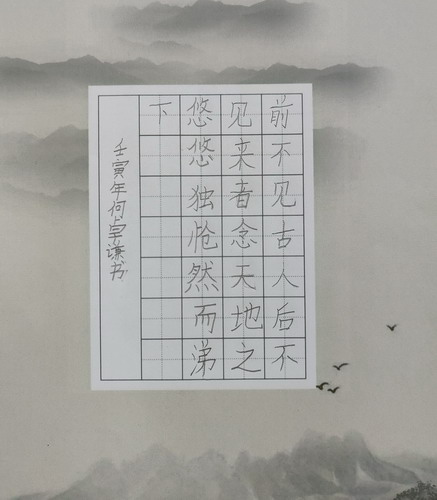 前不见古人后不
见来者念天地之
悠悠独怆然而涕
下
壬寅年何卓谦书